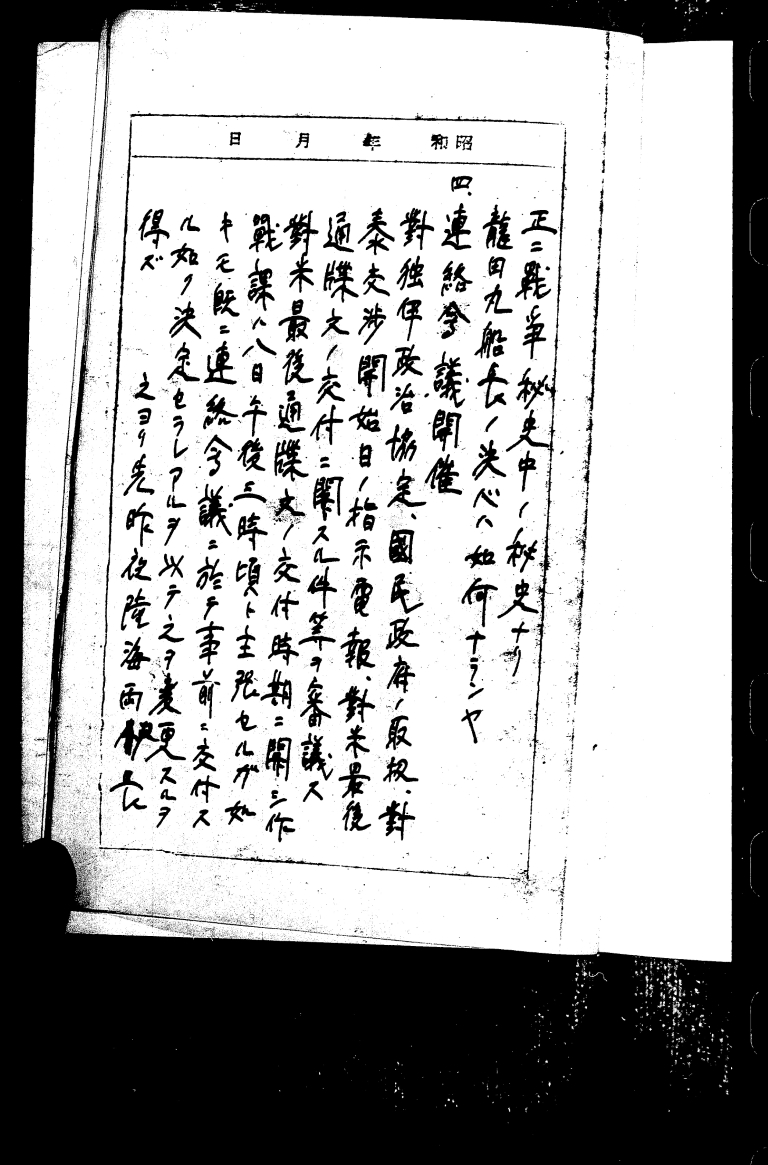 昭和　年　月　日
正ニ戰爭秘史中ノ秘史ナリ
龍田丸船長ノ決心ハ如何ナランヤ
四、連絡会議開催
對独伊政治協定、國民政府ノ取扱、對
泰交渉開始日ノ指示電報、對米最後
通牒文ノ交付ニ関スル件等ヲ審議ス
對米最後通牒文ノ交付時期ニ関シ作
戰課ハ八日午後三時頃ト主張セルガ如
キモ既ニ連絡会議ニ於テ事前ニ交付ス
ル如ク決定セラレアルヲ以テ之ヲ変更スルヲ
得ズ
之ヨリ先昨夜陸海両部長